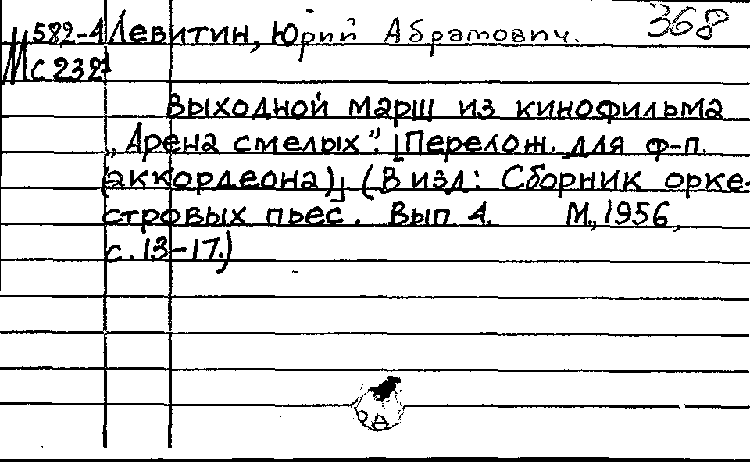 582-4 Левитин, Юрий Абрамович. 368
М С 232
Выходной марш из кинофильма
„Арена смелых". [Перелож. для ф-п.
(аккордеона)] (В изд: Сборник орке-
стровых пьес. Вып 4. М., 1956,
с. 13-17.)